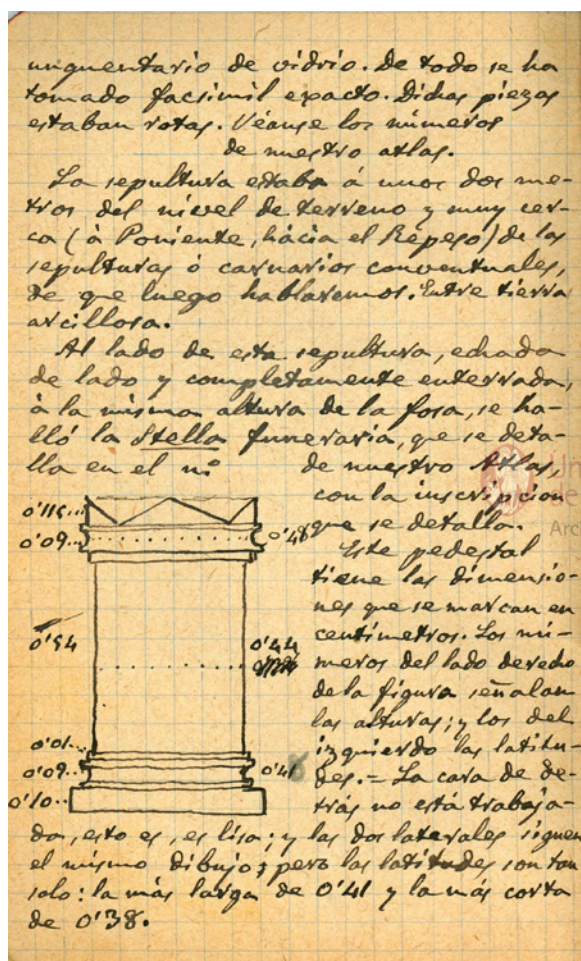 unguentario de vidrio. De todo se ha
tomado facsimil exacto. Dichas piezas
estaban rotas. Véanse los números
de nuestro atlas.
La sepultura estaba á unos dos me-
tros del nivel de terreno y muy cer-
ca (à Poniente, hácia el Repeso) de las
sepulturas ó carnarios conventuales,
de que luego hablaremos. Entre tierra
arcillosa.
Al lado de esta sepultura, echada
de lado y completamente enterrada,
à la misma altura de la fosa, se ha-
lló la Stella funeraria, que se deta-
lla en el n.º de nuestro Atlas,
con la inscripcion
que se detalla.
Este pedestal
tiene las dimensio-
nes que se marcan en
centímetros. Los nú-
meros del lado derecho
de la figura señalan
las alturas; y los del
izquierdo las latitu-
des. = La cara de de-
trás no está trabaja-
da, esto es, es lisa; y las dos laterales siguen
el mismo dibujo; pero las latitudes son tan
solo: la más larga de 0'41 y la más corta
de 0'38.
0'115...
0'09...
0'48
0'54
0'44
0'01..
0'09..
0'10..